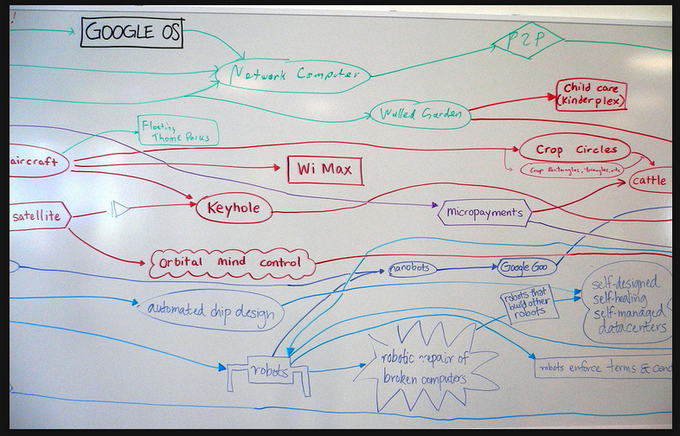 GOOGLE OS
P2P
Network Computer
Child care
(kinderplex)
Walled Garden
Floating
Theme Parks
Crop Circles
aircraft
Wi Max
Crop Rectangles, triangles, etc
cattle
Keyhole
satellite
micropayments
Orbital mind control
nanobots
Google Goo
self-designed
self-healing
self-managed
datacenters
robots that
build other
robots
automated chip design
robotic repair of
broken computers
robots
robots enforce terms & cond